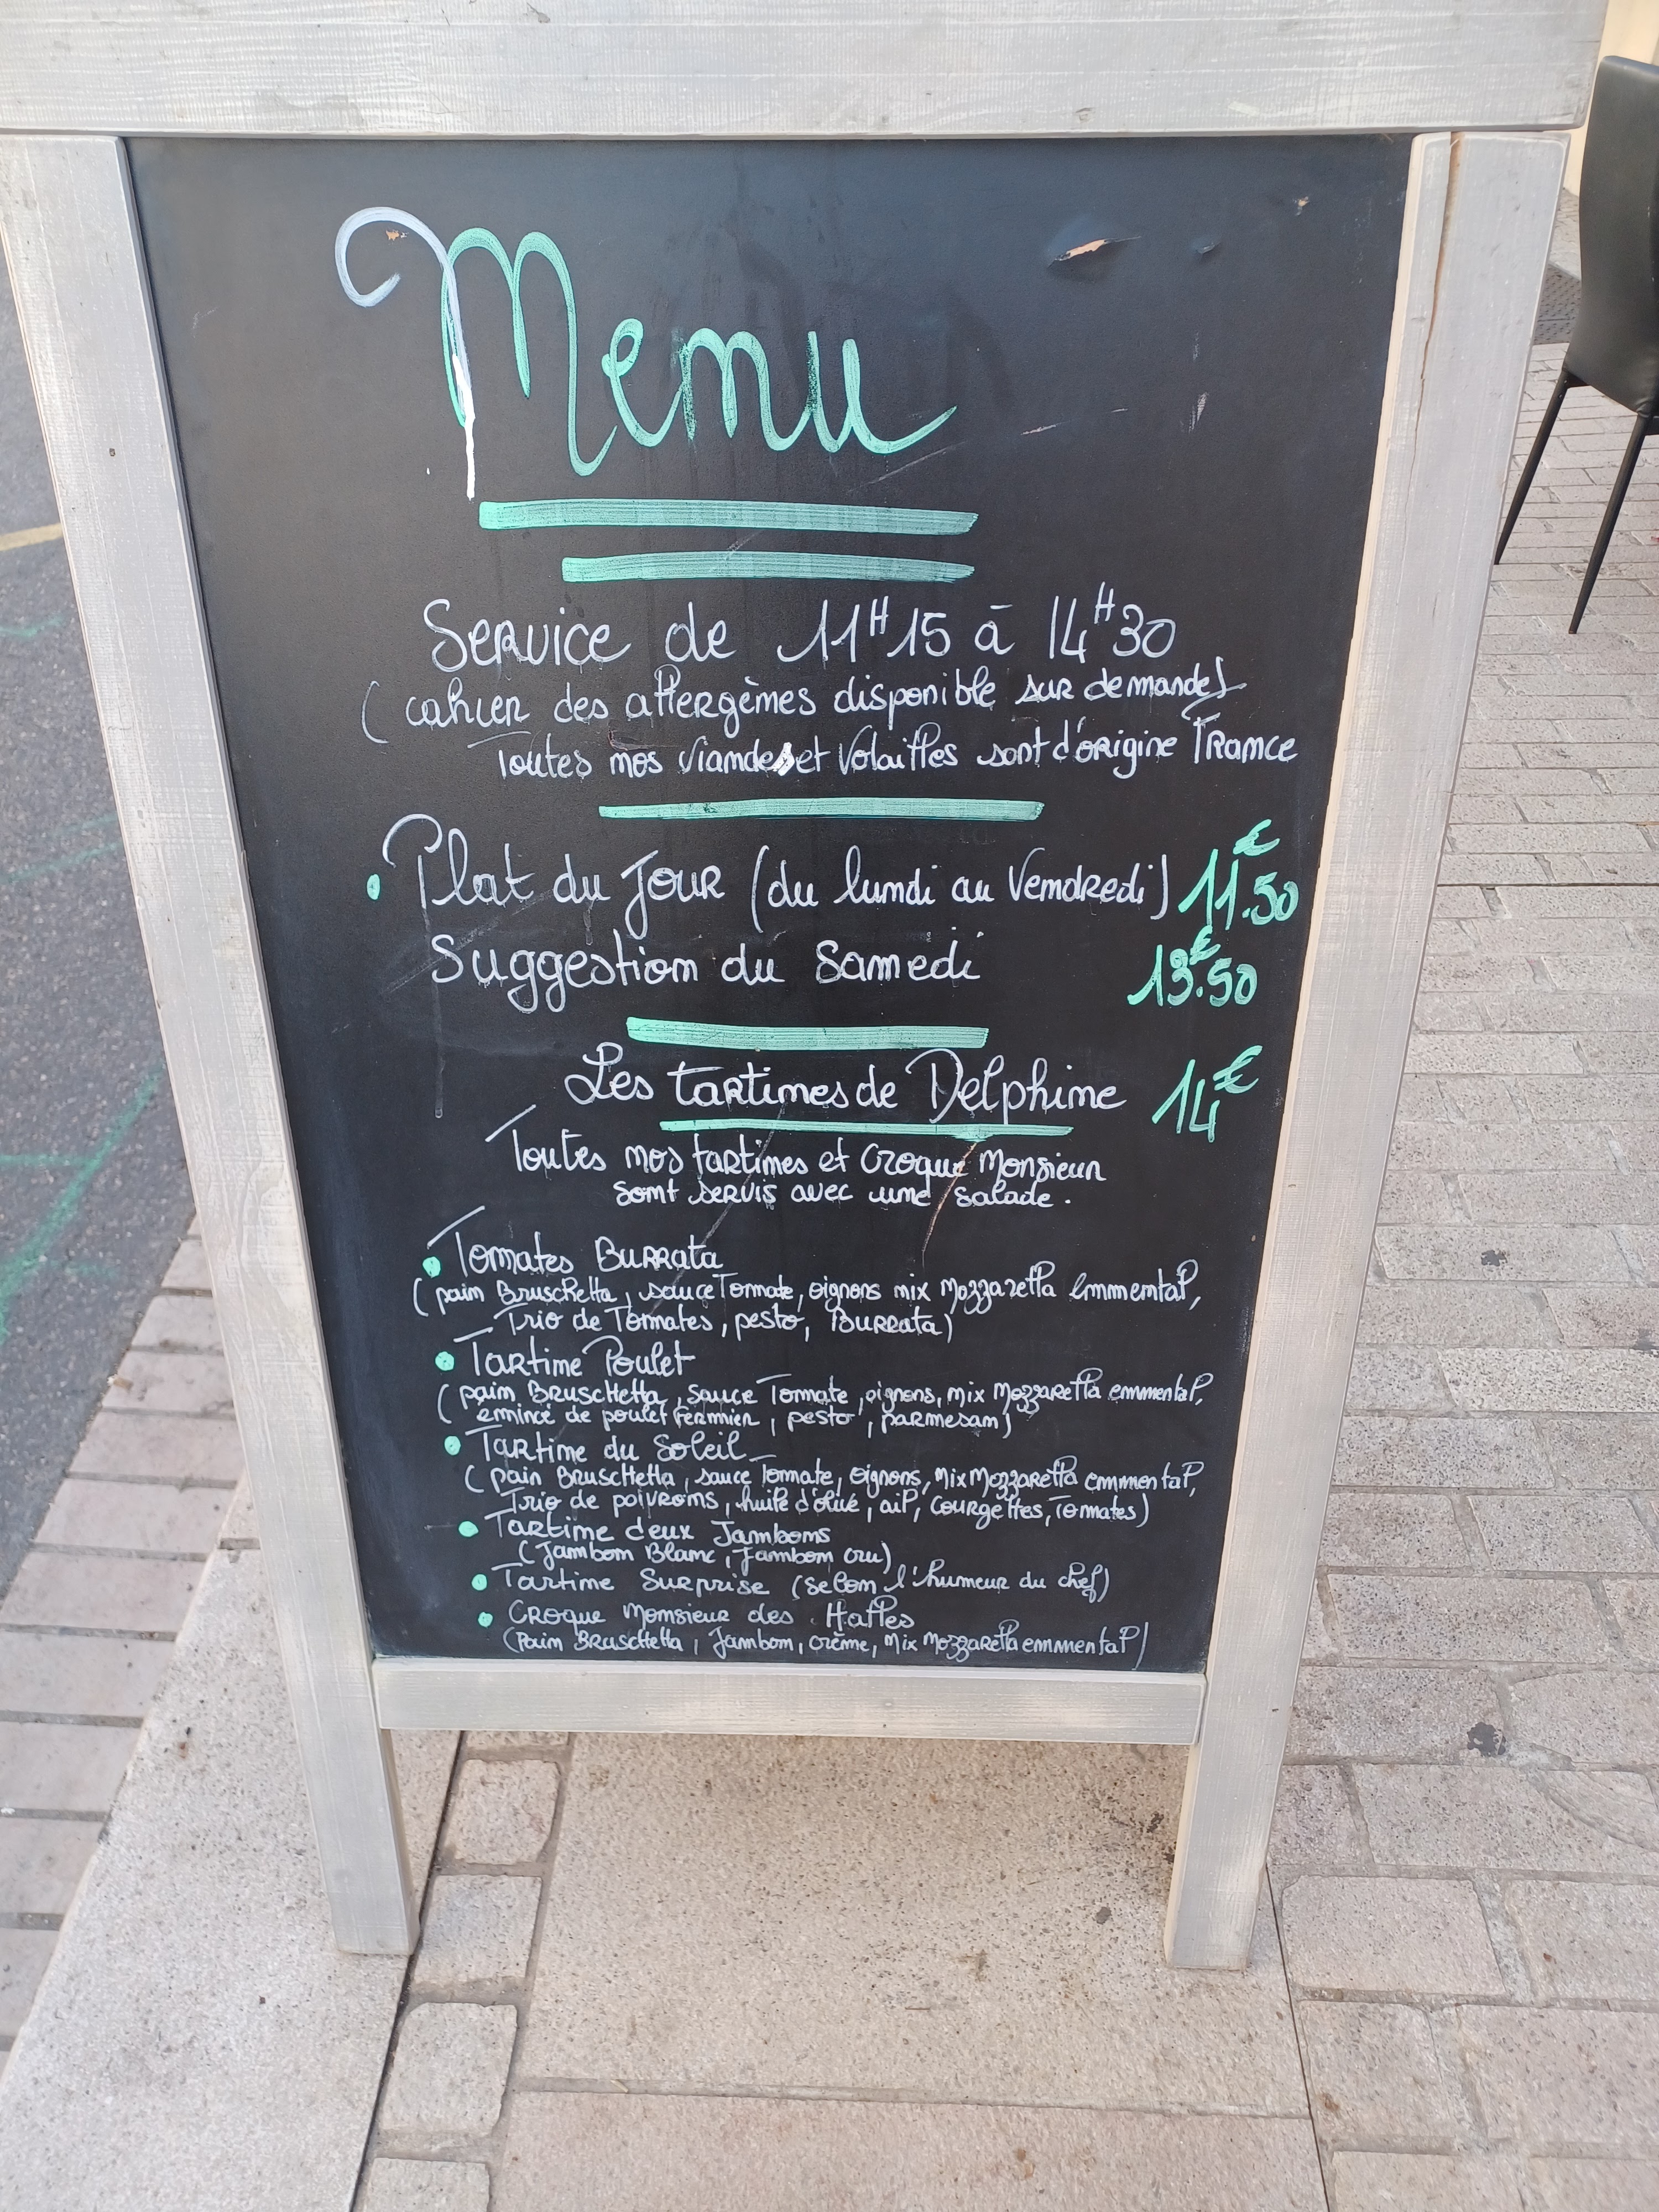 Menu
Service de 11H15 à 14H30
(cahier des allergènes disponible sur demande)
Toutes nos viandes et volailles sont d'origine France
• Plat du jour (du lundi au Vendredi) 11.50€
Suggestion du Samedi 13.50€
Les tartines de Delphine 14€
Toutes nos tartines et Croque Monsieur
sont servis avec une salade.
• Tomates Burrata
(pain Bruschetta, sauce Tomate, oignons mix Mozzarella emmental,
Trio de Tomates, pesto, Burrata)
• Tartine Poulet
(pain Bruschetta, sauce Tomate, oignons, mix Mozzarella emmental,
émincé de poulet fermier, pesto, parmesan)
• Tartine du Soleil
(pain Bruschetta, sauce Tomate, oignons, mix Mozzarella emmental,
Trio de poivrons, huile d'olive, ail, courgettes, Tomates)
• Tartine deux Jambons
(Jambon Blanc, Jambon cru)
• Tartine Surprise (selon l'humeur du chef)
• Croque Monsieur des Halles
(Pain Bruschetta, Jambon, crème, mix mozzarella emmental)